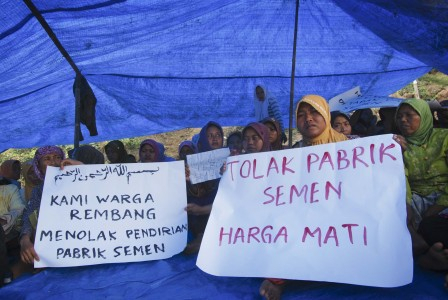 بسم الله الرحمن الرحيم
KAMI WARGA
REMBANG
MENOLAK PENDIRIAN
PABRIK SEMEN
TOLAK PABRIK
SEMEN
HARGA MATI